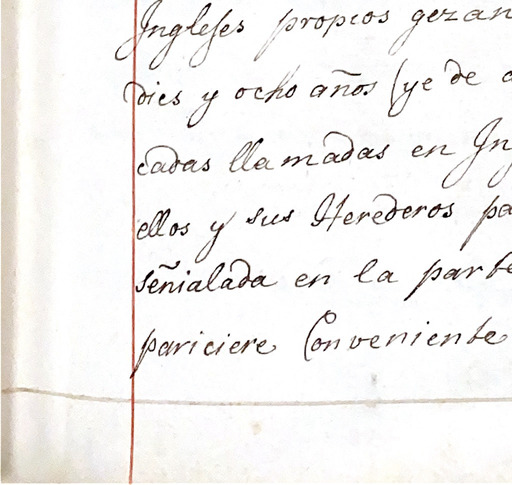 Ingleses propios gezan
dies y ocho años (ye de
cadas llamadas en In
ellos y sus Herederos pa
señialada en la parte
pariciere Conveniente